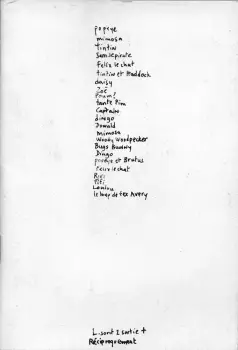 popeye
mimosa
Tintin
Sam le pirate
Felix le chat
tintin et Haddock
daisy
Zoé
tante Pim
Captain
dingo
Donald
Mimosa
Woody Woodpecker
Bugs Bunny
Dingo
popeye et Brutus
Felix le chat
Riri
Fifi
Loulou
le loup de tex Avery
L. sont 2 sortie +
Réciproquement